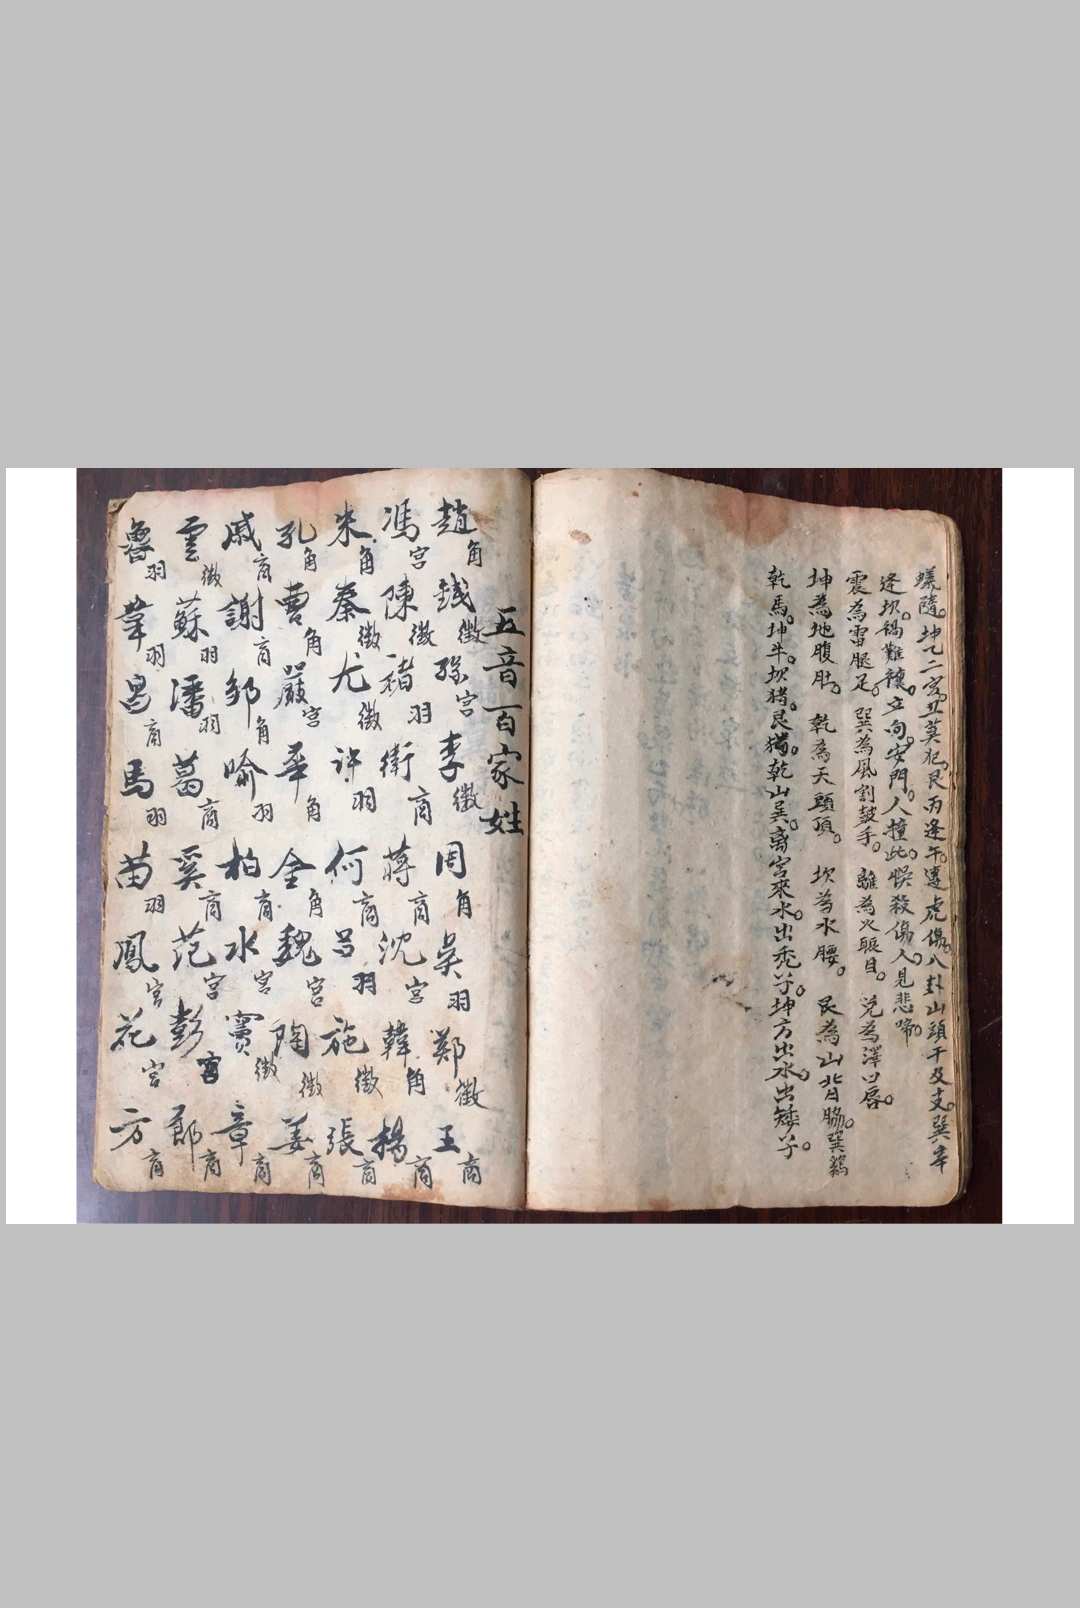 蟻隨。坤乙二宮丑莫犯。艮丙逢午。遭虎傷。八卦山頭干及支。巽辛
逢坎。禍難禳。立向。安門。人撞此。悞殺傷人。見悲啼。
震為雷腿足。巽為風割鼓手。離為火眼目。兌為澤口唇。
坤為地腹肚。乾為天頭頂。坎為水腰。艮為山背脇。巽鷄
乾馬。坤牛。坎猪。艮獨。乾山巽。离宮來水。出禿子。坤方出水。出矮子。
五音百家姓
趙角 錢徵 孫宮 李徵 周角 吳羽 鄭徵 王商
馮宮 陳徵 禇羽 衛商 蔣商 沈宮 韓角 楊商
朱角 秦徵 尤徵 許羽 何商 吕羽 施徵 張商
孔角 曹角 嚴宮 華角 金角 魏宮 陶徵 姜商
戚商 謝商 邹角 喻羽 柏商 水宮 竇徵 章商
雲徵 蘇羽 潘羽 葛商 奚商 范宮 彭宮 郎商
魯羽 韋羽 昌商 馬羽 苗羽 鳳宮 花宮 方商